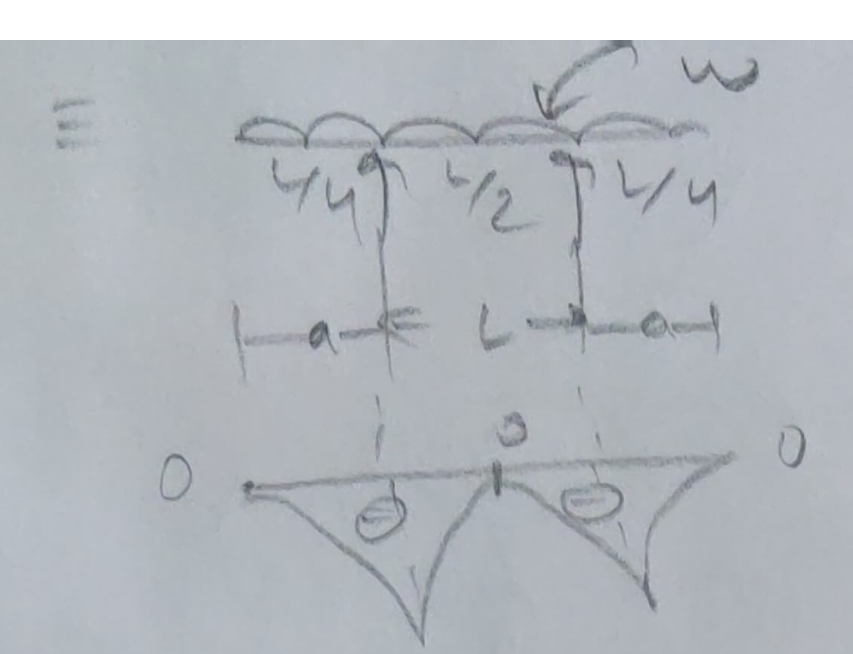 ≡
w
L/4 L/2 L/4
a L a
0 0 0
⊖ ⊖